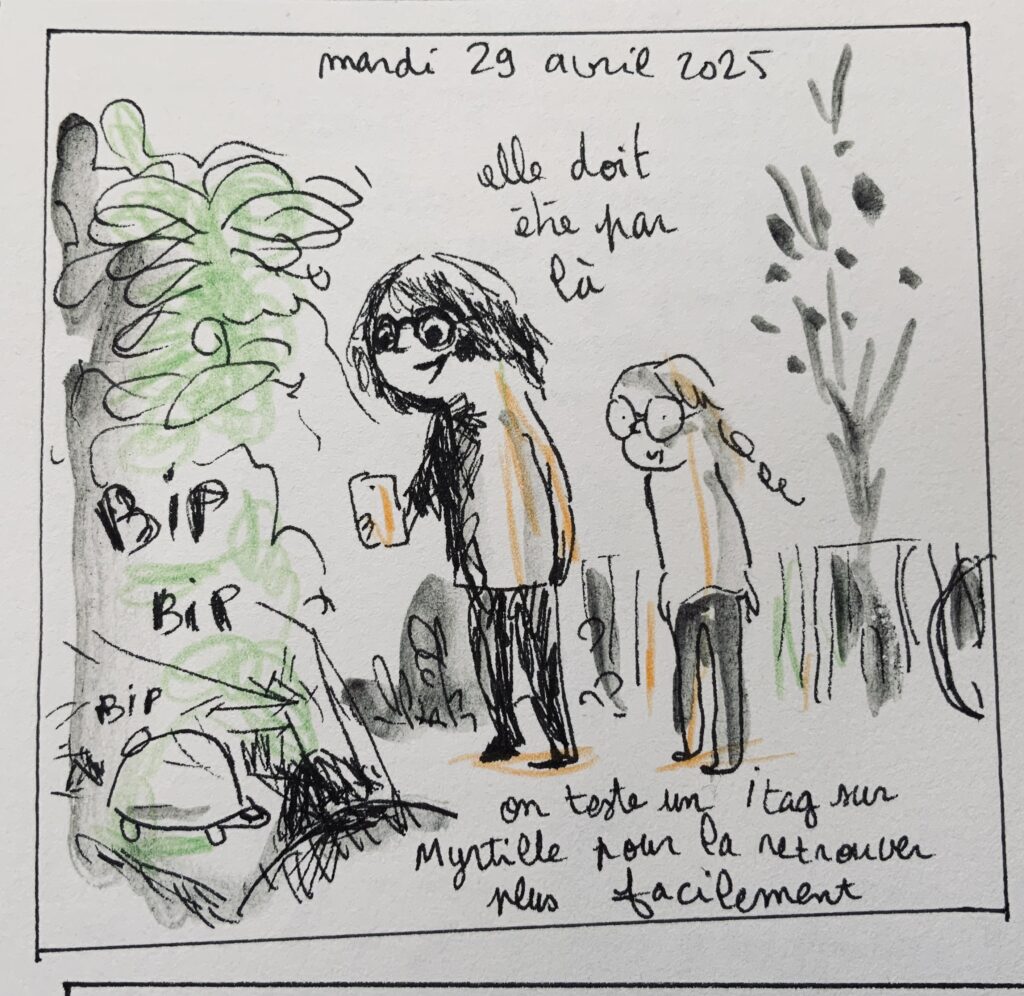 mardi 29 avril 2025
elle doit
être par
là
BiP
BiP
BiP
??
??
on teste un itag sur
Myrtille pour la retrouver
plus facilement